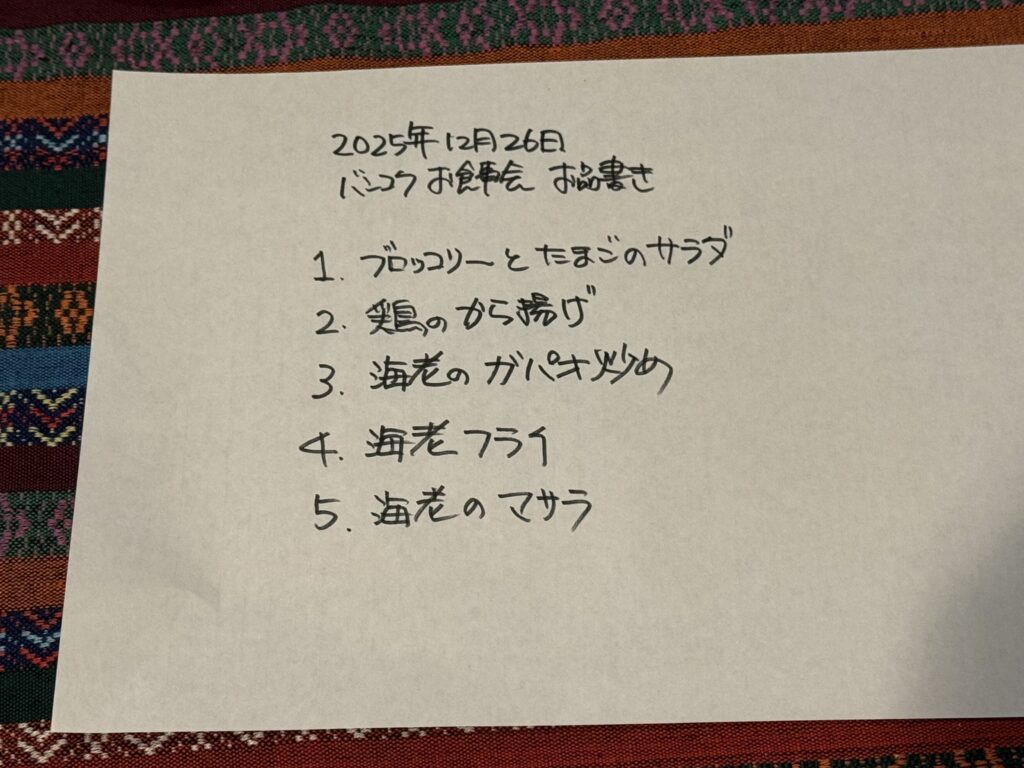 2025年12月26日
バンコク お食事会 お品書き
1. ブロッコリーとたまごのサラダ
2. 鶏のから揚げ
3. 海老のガパオ炒め
4. 海老フライ
5. 海老のマサラ